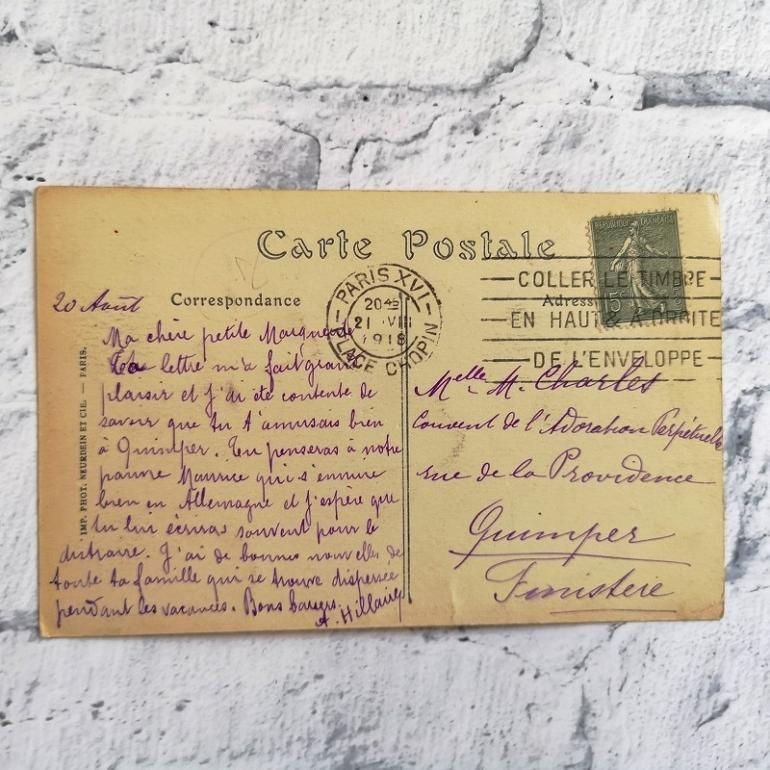 Carte Postale
RÉPUBLIQUE FRANÇAISE
15c
PARIS XVI
20 45
21 VIII
1918
PLACE CHOPIN
COLLER LE TIMBRE
EN HAUT & A DROITE
DE L'ENVELOPPE
Correspondance
Adresse
20 Août
Ma chère petite Marguerite
Ta lettre m'a fait grand
plaisir et j'ai été contente de
savoir que tu t'amusais bien
à Quimper. Tu penseras à notre
pauvre Maurice qui s'ennuie
bien en Allemagne et j'espère que
tu lui écriras souvent pour le
distraire. J'ai de bonnes nouvelles de
toute ta famille qui se trouve dispersée
pendant les vacances. Bons baisers.
A. Hillairet
Melle M. Charles
Couvent de l'Adoration Perpétuelle
rue de la Providence
Quimper
Finistère
IMP. PHOT. NEURDEIN ET CIE. — PARIS.